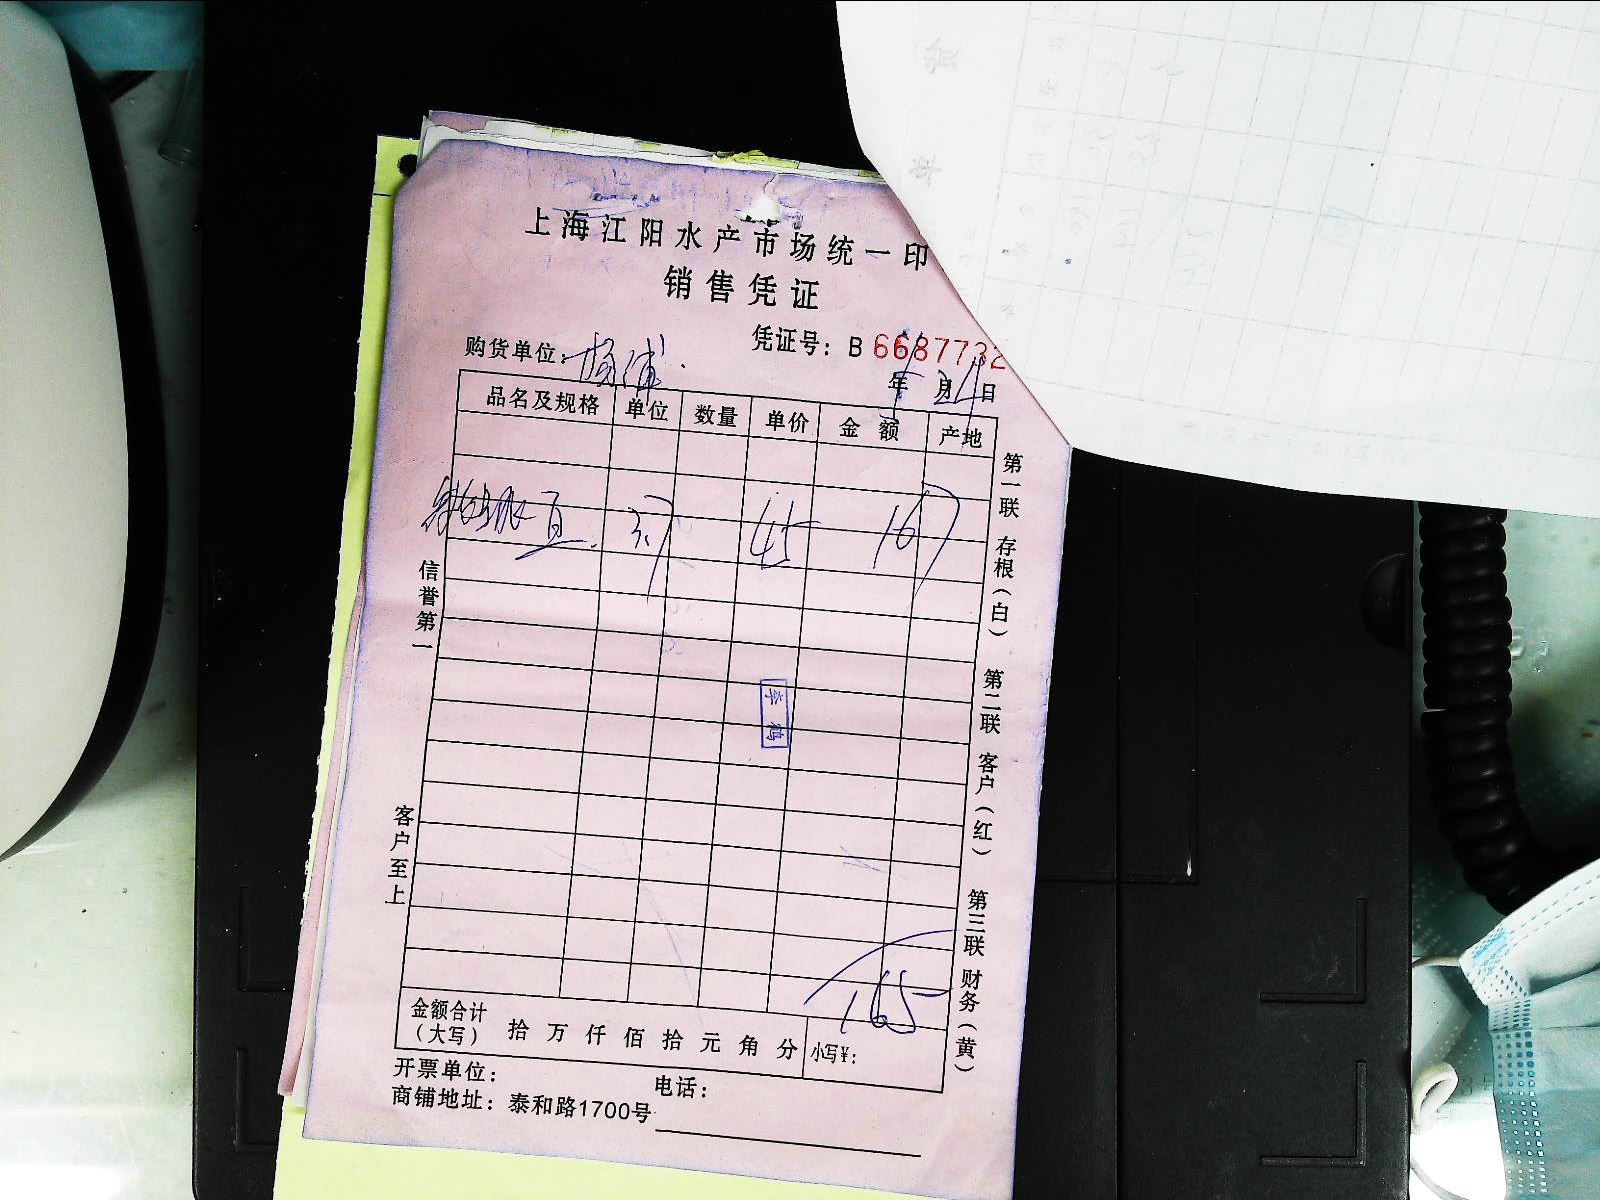 上海江阳水产市场统一印
销售凭证
凭证号：B 6687732
购货单位：杨浦
年 月 日
5 21
品名及规格 单位 数量 单价 金额 产地
3.7 45 167
信誉第一
客户至上
第一联 存根（白） 第二联 客户（红） 第三联 财务（黄）
165
金额合计（大写） 拾 万 仟 佰 拾 元 角 分 小写￥：
开票单位： 电话：
商铺地址：泰和路1700号